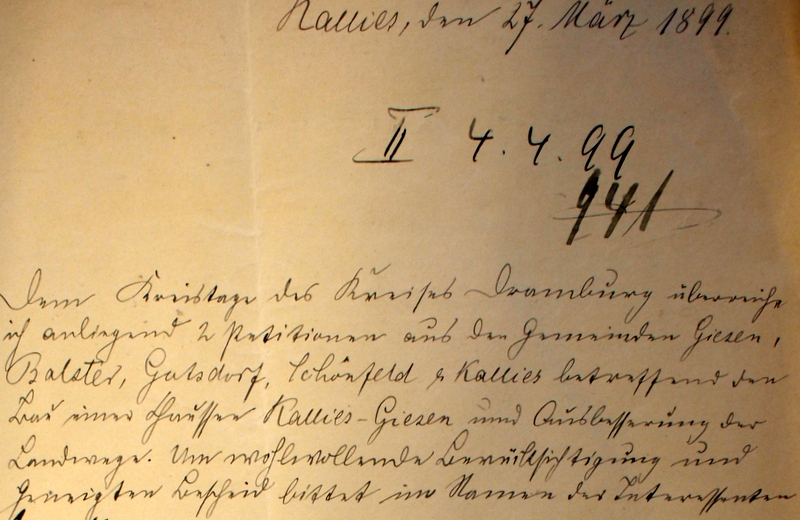 Kallies, den 27. März 1899.
II 4.4.99
941
Dem Kreistage des Kreises Dramburg überreiche
ich anliegend 2 Petitionen aus den Gemeinden Giesen,
Balster, Gutsdorf, Schönfeld & Kallies betreffend den
Bau einer Chaussee Kallies-Giesen und Ausbesserung der
Landwege. Um wohlwollende Berücksichtigung und
geneigten Bescheid bittet im Namen der Interessenten